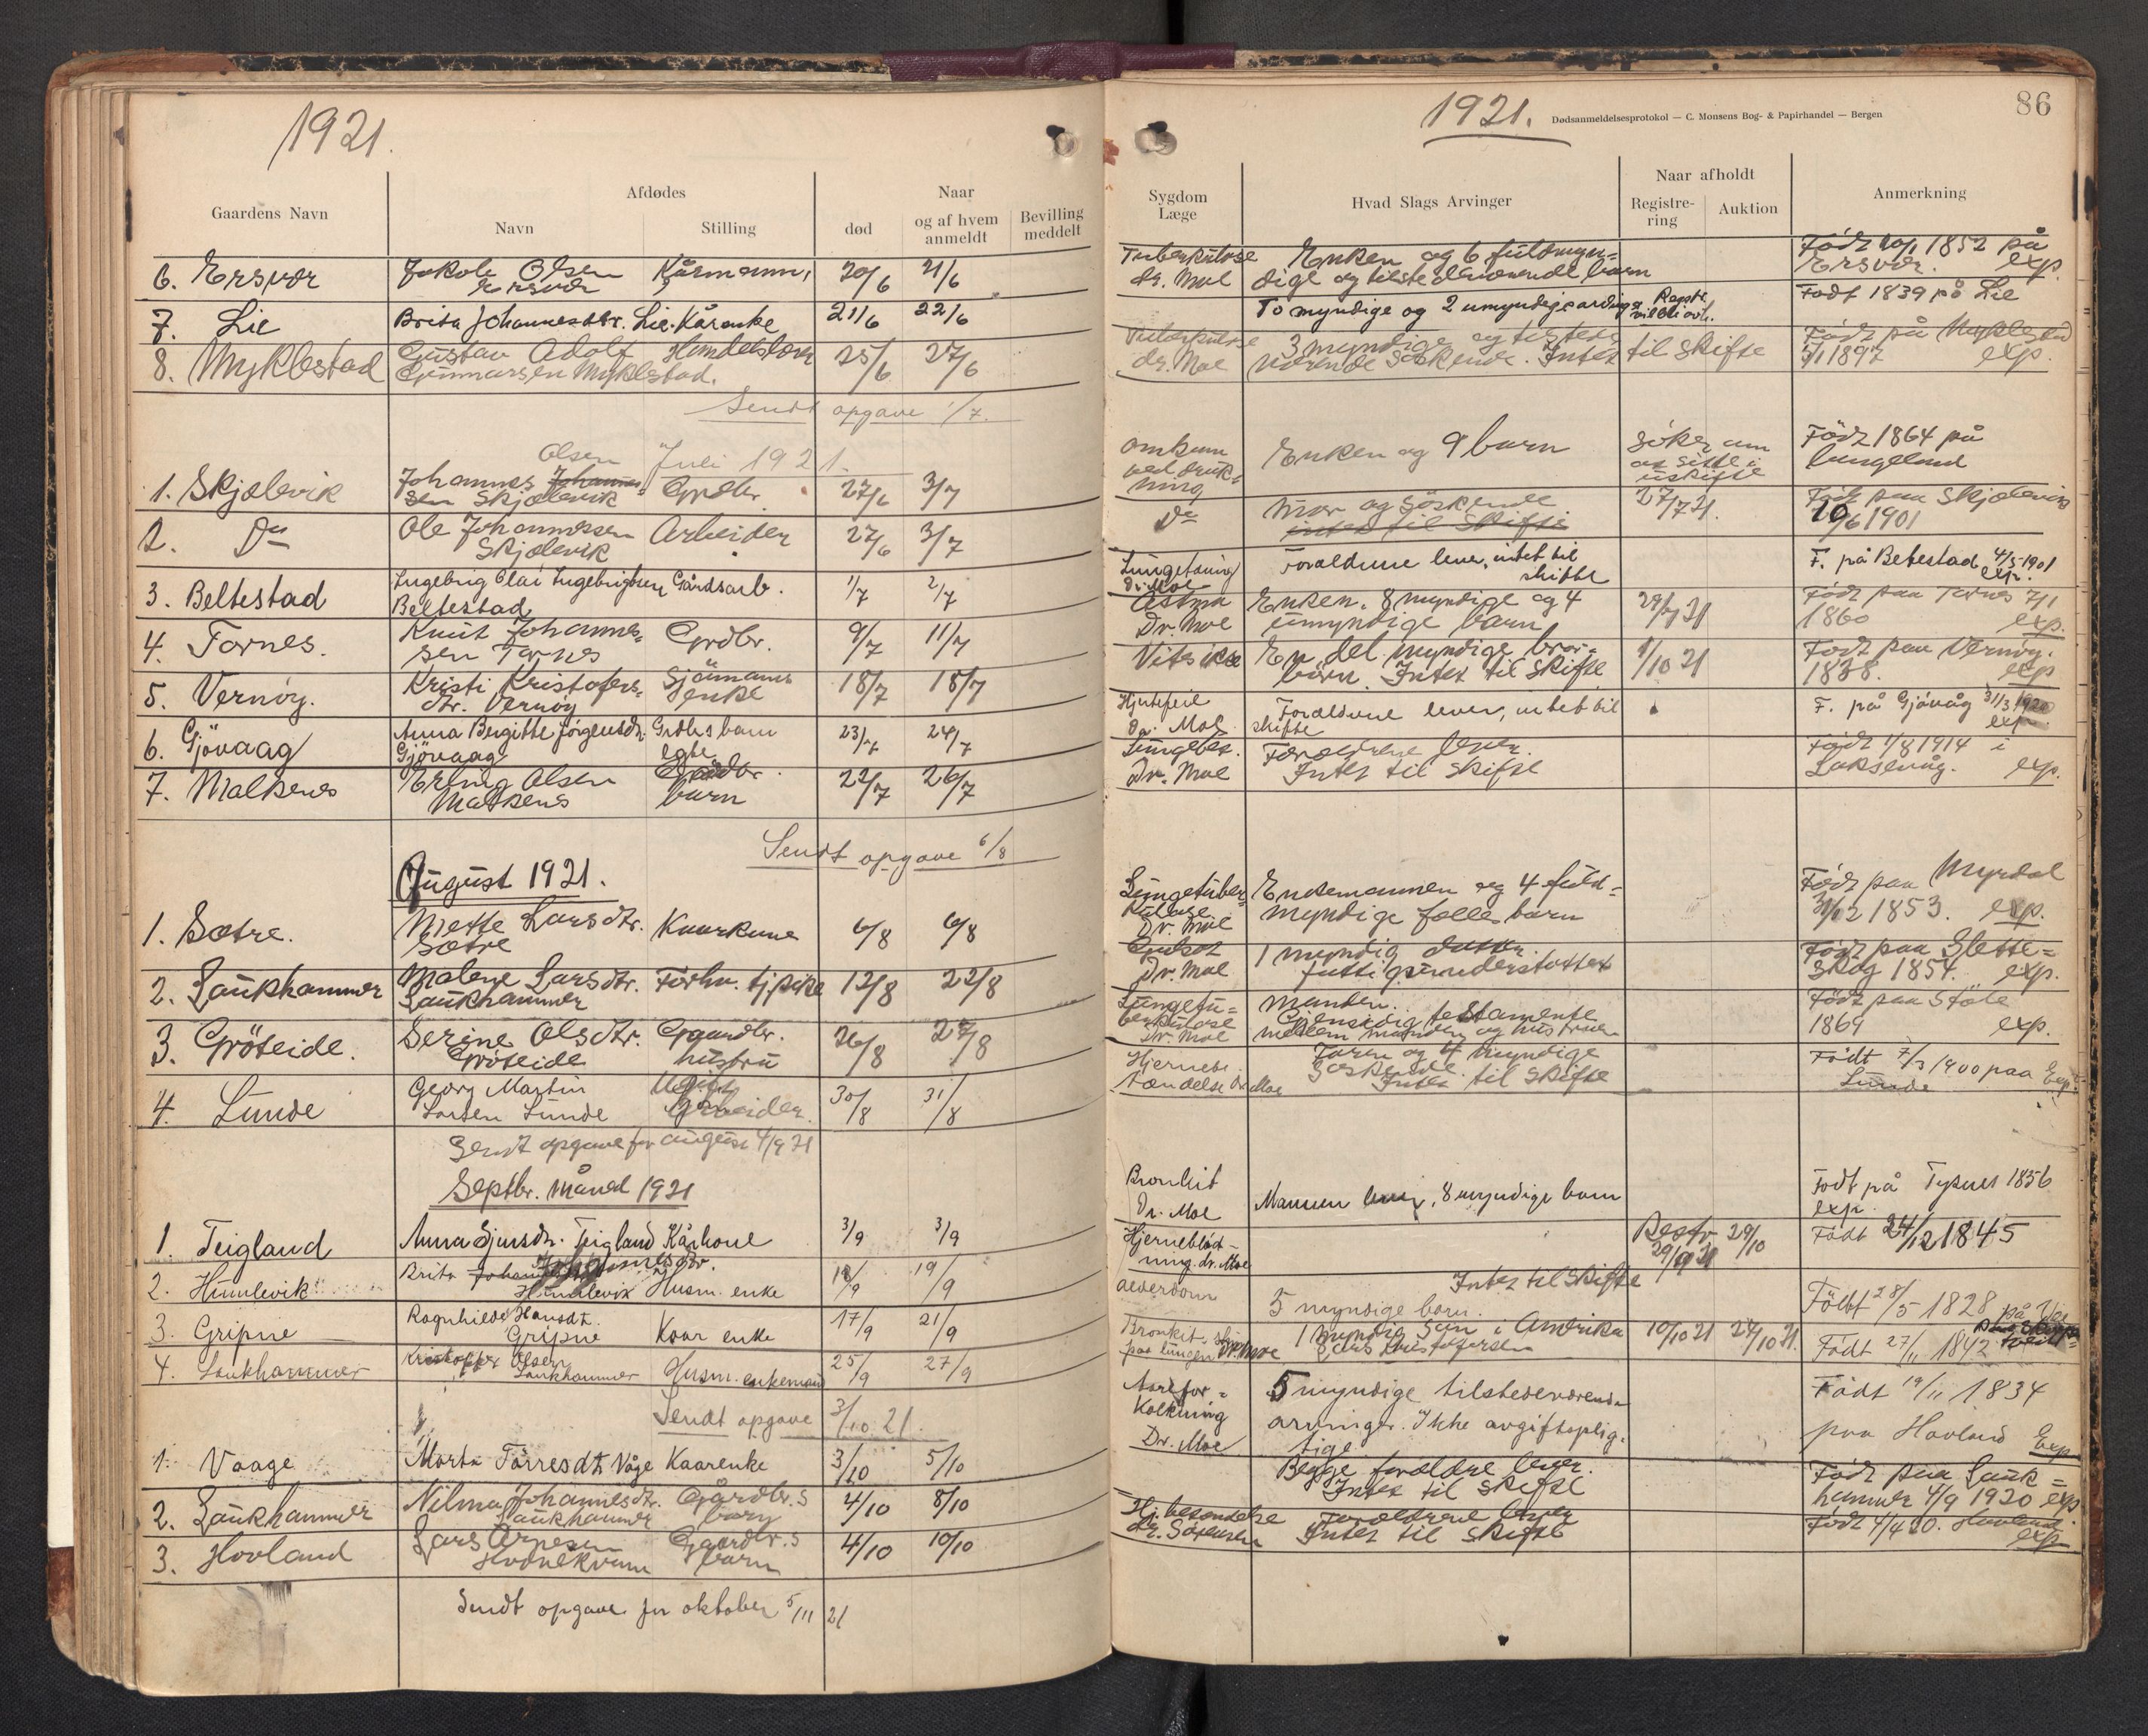 1921.
Gaardens Navn
Afdødes
Navn
Stilling
Naar
død
og af hvem anmeldt
Bevilling meddelt
6. Ersvær
Jakob Olsen
Ersvær
Kårmann
20/6
21/6
7. Lie
Brita Johannesdtr. Lie. Kårenke
21/6
22/6
8. Myklestad
Gustav Adolf
Gunnarsen Myklestad.
Handelslærer
25/6
27/6
Sendt opgave 1/7.
Juli 1921.
Olsen
1. Skjælevik
Johannes Johannes-
sen Skjælevik
Grdbr.
27/6
3/7
2. Do
Ole Johannessen
Skjælevik
Arbeider
27/6
3/7
3. Beltestad
Ingebrig Olai Ingebrigtsen
Beltestad
Gårdsarb.
1/7
2/7
4. Tornes.
Knut Johannes-
sen Tornes
Grdbr.
9/7
11/7
5. Vernöy.
Kristi Kristofers-
dtr. Vernöy
Sjömanns
enke
18/7
18/7
6. Gjövaag
Anna Bergitte Jörgensdtr.
Gjövaag
Grdbrs barn
egte
23/7
24/7
7. Malkenes
Erling Olsen
Malkenes
Grdbr.
barn
22/7
26/7
Sendt opgave 6/8
August 1921.
1. Sætre.
Mette Larsdtr.
Sætre
Kaarkone
6/8
6/8
2. Laukhammer
Malene Larsdtr.
Laukhammer
Forhv. tj.pike
12/8
22/8
3. Gröteide.
Serine Olsdtr.
Gröteide
Gaardbr.
hustru
26/8
27/8
4. Lunde
Georg Martin
Larsen Lunde
Ugift
Arbeider
30/8
31/8
Sendt opgave for august 4/9 21
Septbr. måned 1921
1. Teigland
Anna Sjursdtr. Teigland Kårkone
3/9
3/9
2. Humlevik
Brita Johannesdtr.
Humlevik
Husm. enke
18/9
19/9
3. Gripne
Ragnhilde Hansdt.
Gripne
Kaar enke
17/9
21/9
4. Laukhammer
Kristoffer Olsen
Laukhammer
Husm. enkemand
25/9
27/9
Sendt opgave 3/10 21.
1. Vaage
Marta Tørresdtr. Våge Kaarenke
3/10
5/10
2. Laukhammer
Nilma Johannesdtr.
Laukhammer
Gårdbr.s
barn
4/10
8/10
3. Hovland
Lars Arnesen
Gaardbr.s
barn
4/10
10/10
Sendt opgave for oktober 5/11 21
1921.
Dødsanmeldelsesprotokol — C. Monsens Bog- & Papirhandel — Bergen
86
Sygdom
Læge
Hvad Slags Arvinger
Naar afholdt
Registre-
ring
Auktion
Anmerkning
Tuberkulose
dr. Moe
Enken og 6 fuldmyn-
dige og tilstedeværende barn
Född 1852 på
Ersvær. exp.
To myndige og 2 umyndige arvinger
Registr.
vil bli avh.
Født 1839 på Lie
Tuberkulose
dr. Moe
3 myndige og tilstede-
værende söskende. Intet til skifte
Född på Myklestad
1897 exp.
omkom
ved druk-
ning
Enken og 9 barn
Söker om
at sitte i
uskifte
Född 1864 på
Lungeland
Do
Mor og söskende
intet til skifte
27/7 21.
Född paa Skjælevik
10/6 1901
Lungetæring
Dr. Moe
Forældrene lever, intet til
skifte
F. på Betestad 4/5-1901
exp.
Astma
Dr. Moe
Enken. 8 myndige og 4
umyndige barn
29/7 21
Född paa Tornes 7/1
1860 exp.
En del myndige bror-
börn. Intet til skifte
1/10 21
Född paa Vernöy.
1838. exp
Hjertefeil
Dr. Moe
Forældrene lever, intet til
skifte
F. på Gjövåg 31/3 1920
exp.
Lungebet.
Dr. Moe
Forældrene lever.
Intet til skifte
Född 1/8 1914 i
Laksevåg. exp.
Lungetuber-
kulose
Dr. Moe
Enkemannen og 4 fuld-
myndige fælles barn
Född paa Myrdal
1853. exp.
Dr. Moe
1 myndig datter.
fattigunderstøttet
Född paa Slette-
skog 1854. exp.
Lungetu-
berkulose
Dr. Moe
Manden.
Gjensidig testamente
mellem manden og hustruen
Född paa Støle
1869 exp.
Hjernebe-
tændelse Dr Moe
Faren og 4 myndige
Søskende. Intet til skifte
Född 7/3 1900 paa
Lunde Exp.
Bronkit
Dr. Moe
Mannen lever, 8 myndige barn
Fodt på Tysnes 1856
exp
Hjerneblöd-
ning dr. Moe
Restr
29/9 21
29/10
Födt 24/12 1845
alderdom
Intet til Skifte
5 myndige barn.
Født 28/5 1828
Bronkit
paa lungen Dr. Moe
1 myndig Søn i Amerika
10/10 21
27/10 21.
Födt 27/11 1842
Aarefor-
kalkning
Dr. Moe
5 myndige tilstedeværende
arvinger. Ikke avgiftsplig-
tige
Födt 19/11 1834
paa Hovland Exp
Begge forældre lever.
Intet til skifte
Född paa Lauk-
hammer 4/9 1920 exp
Hj. betændelse
Dr. Sørensen
Forældrene lever
Intet til skifte
Født 4/4 20. Hovland
exp